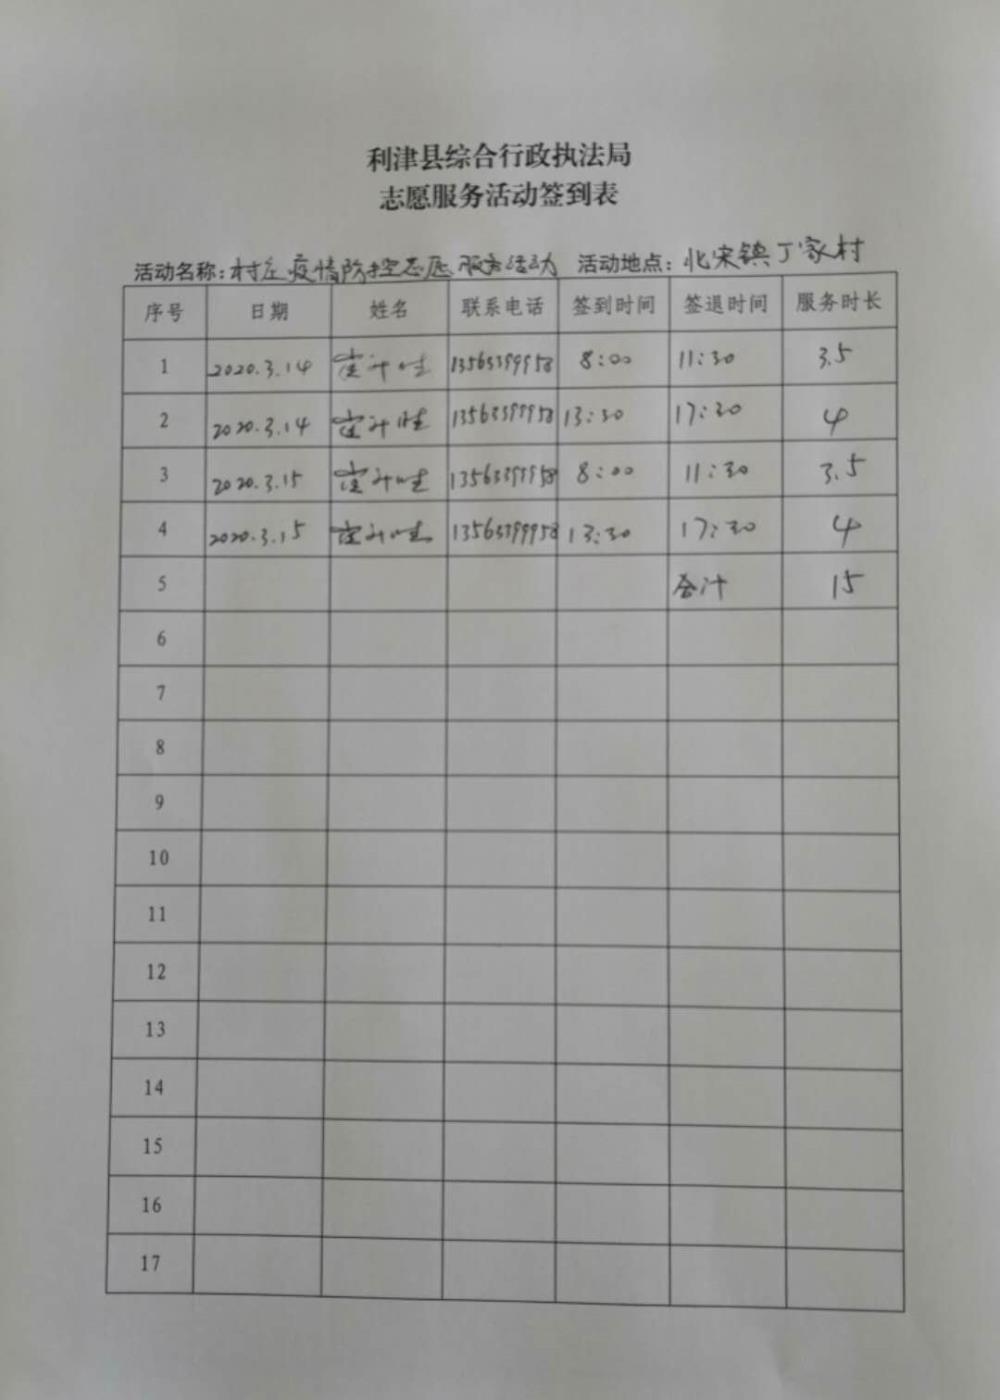 利津县综合行政执法局
志愿服务活动签到表
活动名称：村庄疫情防控志愿服务活动 活动地点：北宋镇丁家村
序号 日期 姓名 联系电话 签到时间 签退时间 服务时长
1 2020.3.14 13563399958 8:00 11:30 3.5
2 2020.3.14 13563399958 13:30 17:30 4
3 2020.3.15 13563399958 8:00 11:30 3.5
4 2020.3.15 13563399958 13:30 17:30 4
5 合计 15
6
7
8
9
10
11
12
13
14
15
16
17